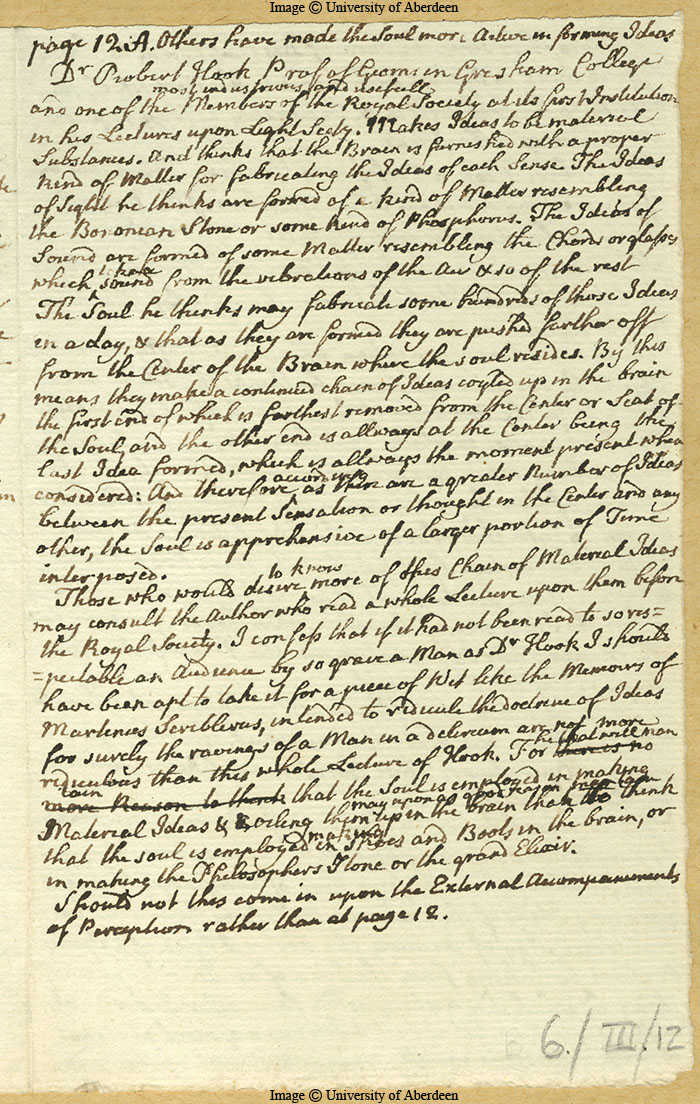 Image © University of Aberdeen
page 12. A. Others have made the Soul more Active in forming Ideas
Dr Robert Hook Prof of Geom: in Gresham College
most industrious and usefull
and one of the Members of the Royal Society at its first Institution
in his Lectures upon Light Sect 7. Makes Ideas to be material
Substances. And thinks that the Brain is furnished with a proper
kind of Matter for fabricating the Ideas of each Sense. The Ideas
of Sight he thinks are formed of a kind of Matter resembling
the Bononian Stone or some kind of Phosphorus. The Ideas of
Sound are formed of some Matter resembling the Chords or glasses
which sound from the vibrations of the Air & so of the rest
The Soul he thinks may fabricate some hundreds of those Ideas
in a day, & that as they are formed they are pushed farther off
from the Center of the Brain where the soul resides. By this
means they make a continued chain of Ideas coyled up in the brain
the first end of which is farthest removed from the Center or Seat of
the Soul, and the other end is allways at the Center being the
last Idea formed, which is allways the moment present when
considered: And therefore according as there are a greater Number of Ideas
between the present Sensation or thought in the Center and any
other, the Soul is apprehensive of a larger portion of Time
interposed.
to know
Those who would desire more of this Chain of Material Ideas
may consult the Author who read a whole Lecture upon them before
the Royal Society. I confess that if it had not been read to so res=
=pectable an Audience by so grave a Man as Dr Hook I should
have been apt to take it for a piece of Wit like the Memoirs of
Martinus Scriblerus, intended to ridicule the doctrine of Ideas
for surely the ravings of a Man in a delirium are not more
ridiculous than this whole Lecture of Hook. For he that will main
tain there is no
more Reason to think that the Soul is employed in making
Material Ideas & coiling them up in the brain than to think
may upon as good reason
that the soul is employed in making Shoes and Boots in the brain, or
in making the Philosophers Stone or the grand Elixir.
Should not this come in upon the External Accompaniments
of Perception rather than at page 12.
6./III/12
Image © University of Aberdeen